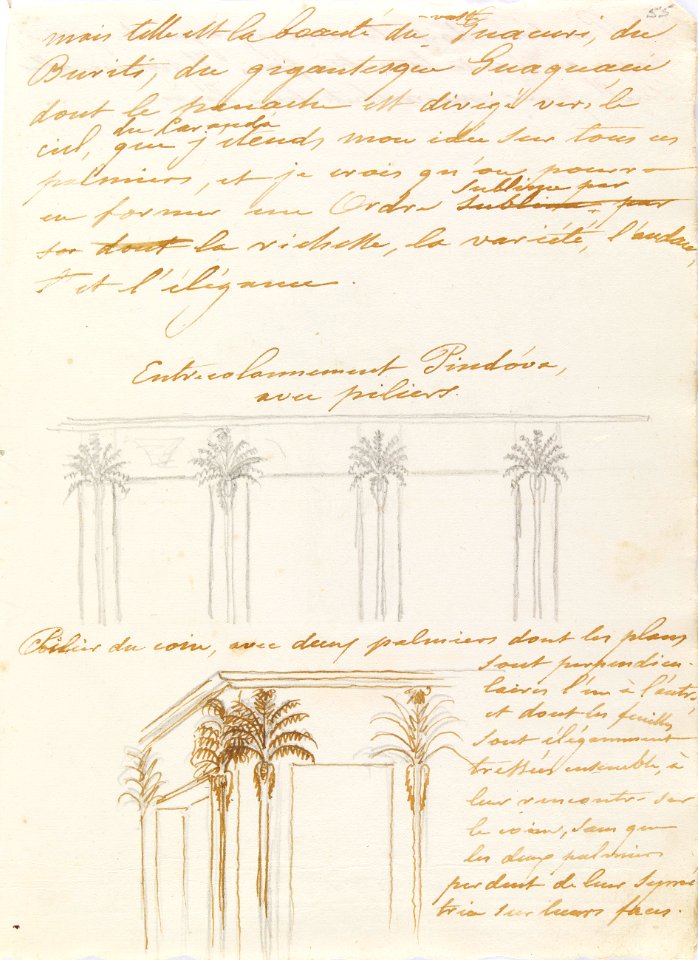 55
mais telle est la beauté du vaste Guacuri, du
Buriti, du gigantesque Guaguaçú
dont le panache est dirigé vers le
ciel, du Carandá que j'étends mon idée sur tous ces
palmiers, et je crois qu'on pourra
en former un Ordre sublime par sublime, par
dont la richesse, la variété, l'audace,
et l'élégance.
Entrecolonnement Pindóva,
avec piliers.
Pilier du coin, avec deux palmiers dont les plans
sont perpendicu-
laires l'un à l'autre
et dont les feuilles
sont élégamment
tressées ensemble, à
leur rencontre sur
le coin, sans que
les deux palmiers
perdent de leur symé
trie sur leurs faces.